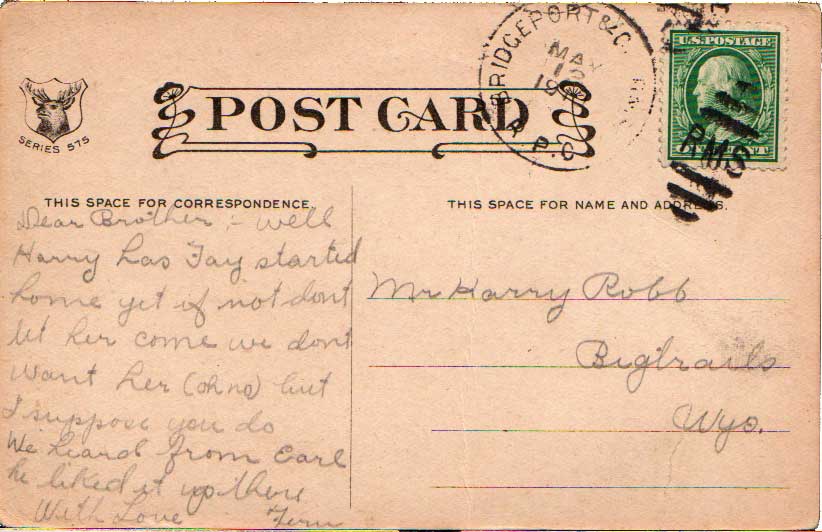 BRIDGEPORT & C.
MAY
19
R.P.O.
U.S. POSTAGE
RMS
POST CARD
SERIES 575
THIS SPACE FOR CORRESPONDENCE.
THIS SPACE FOR NAME AND ADDRESS.
Dear Brother :- well
Harry has Fay started
home yet if not dont
let her come we dont
want her (oh no) but
I suppose you do
We heard from Earl
he liked it up there
With Love Fern
Mr Harry Robb
Bigtrails
Wyo.